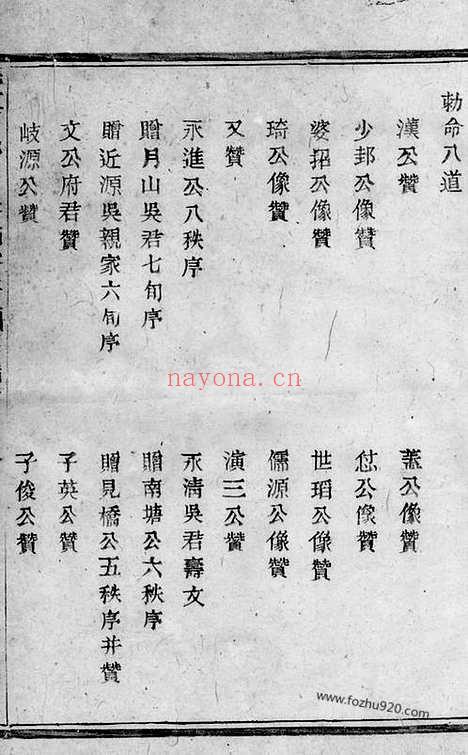 勅命八道
漢公贊
蓋公像贊
少邦公像贊
公像贊
婆招公像贊
世瑫公像贊
琦公像贊
儒源公像贊
又贊
演三公贊
永進公八秩序
永清吳君壽文
贈月山吳君七旬序
贈南塘公六秩序
贈近源吳親家六旬序
贈見橋公五秩序并贊
文公府君贊
子英公贊
岐源公贊
子俊公贊
nayona.cn
www.fozhu920.com